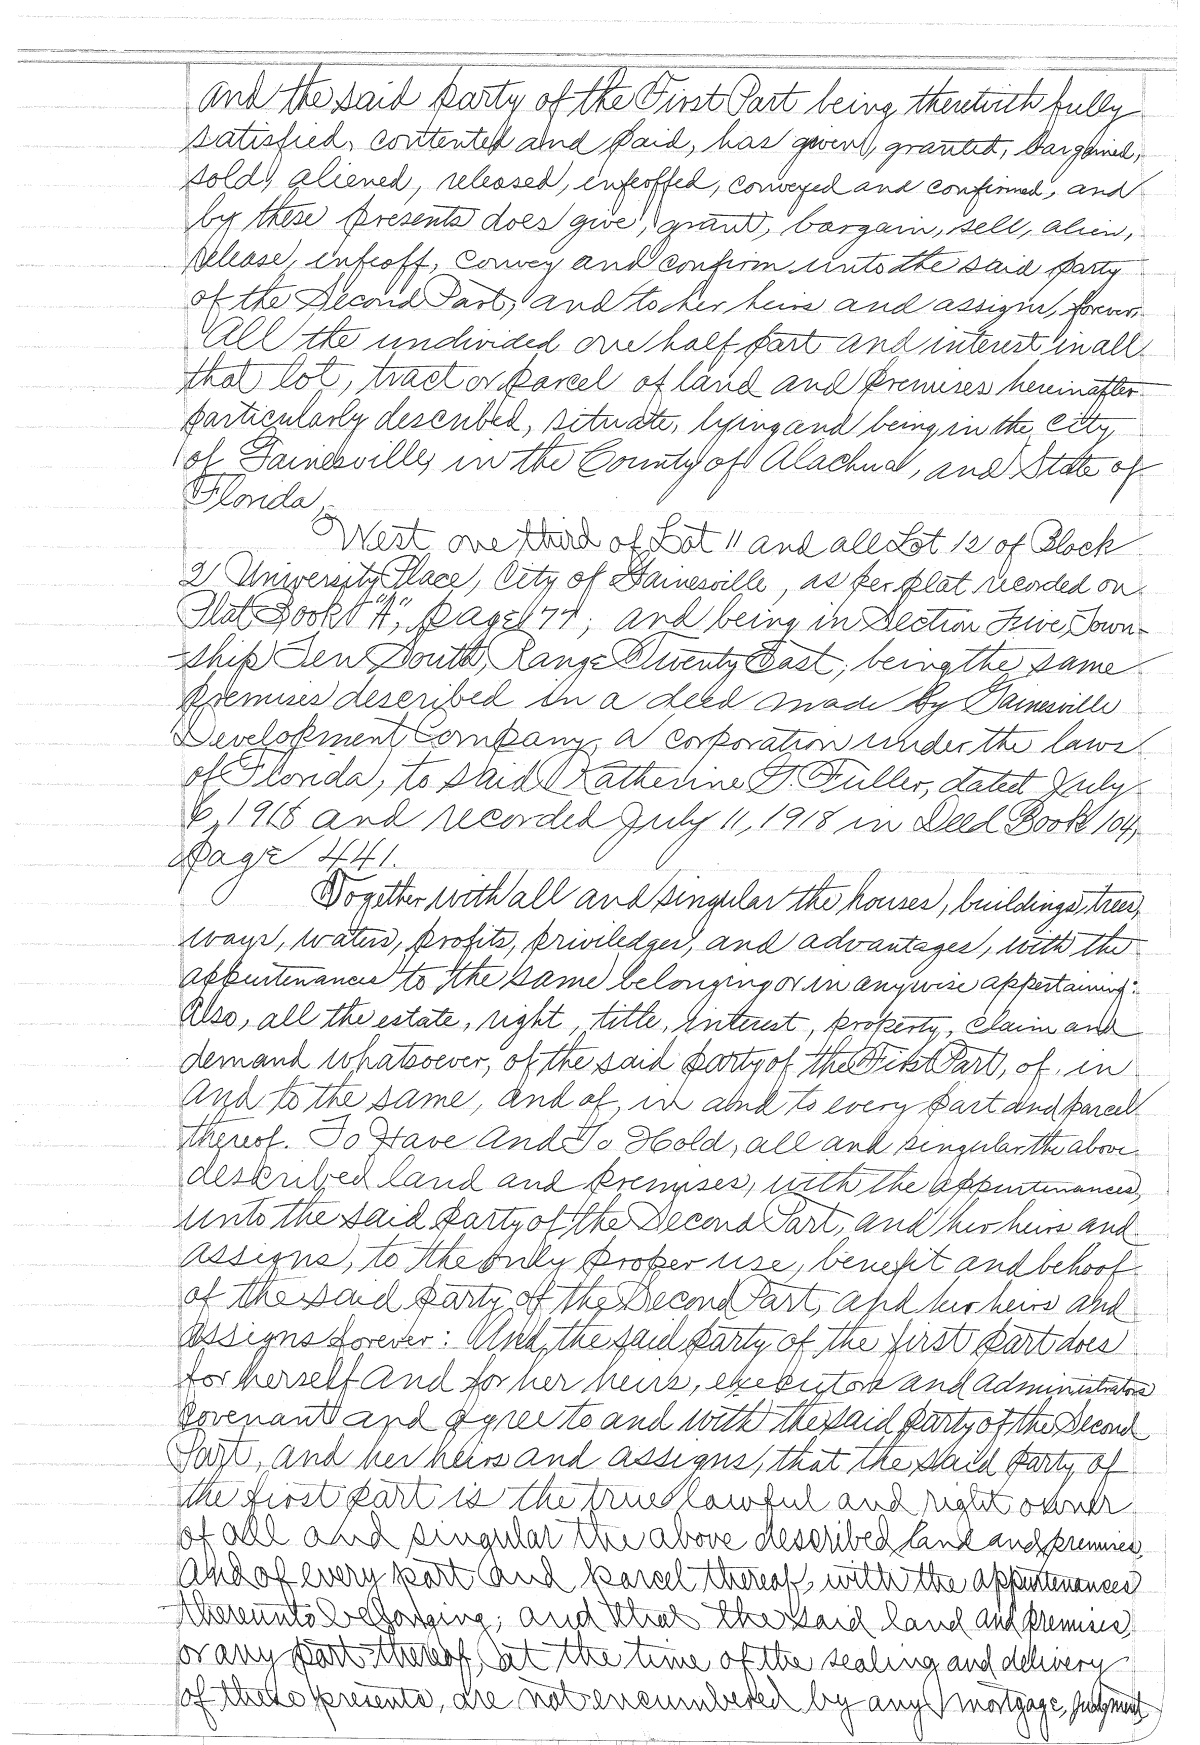 and the said party of the First Part being therewith fully
satisfied, contented and paid, has given, granted, bargained,
sold, aliened, released, enfeoffed, conveyed and confirmed, and
by these presents does give, grant, bargain, sell, alien,
release, enfeoff, convey and confirm unto the said party
of the Second Part, and to her heirs and assigns, forever,
All the undivided one half part and interest in all
that lot, tract or parcel of land and premises hereinafter
particularly described, situate, lying and being in the City
of Gainesville, in the County of Alachua, and State of
Florida,
West one third of Lot 11 and all Lot 12 of Block
2 University Place, City of Gainesville, as per plat recorded on
Plat Book "A", page 77, and being in Section Five, Town-
ship Ten South, Range Twenty East; being the same
premises described in a deed made by Gainesville
Development Company, a corporation under the laws
of Florida, to said Katherine G. Fuller, dated July
6, 1918 and recorded July 11, 1918 in Deed Book 104,
page 441.
Together with all and singular the houses, buildings, trees,
ways, waters, profits, priviledges, and advantages, with the
appurtenances to the same belonging or in anywise appertaining:
Also, all the estate, right, title, interest, property, claim and
demand whatsoever, of the said party of the First Part, of, in
and to the same, and of, in and to every part and parcel
thereof. To Have And To Hold, all and singular the above
described land and premises, with the appurtenances,
unto the said party of the Second Part, and her heirs and
assigns, to the only proper use, benefit and behoof
of the said party of the Second Part, and her heirs and
assigns forever: And the said party of the first part does
for herself and for her heirs, executors and administrators
covenant and agree to and with the said party of the Second
Part, and her heirs and assigns, that the said party of
the first part is the true lawful and right owner
of all and singular the above described land and premises,
and of every part and parcel thereof, with the appurtenances
thereunto belonging; and that the said land and premises,
or any part thereof, at the time of the sealing and delivery
of these presents, are not encumbered by any mortgage, judgment